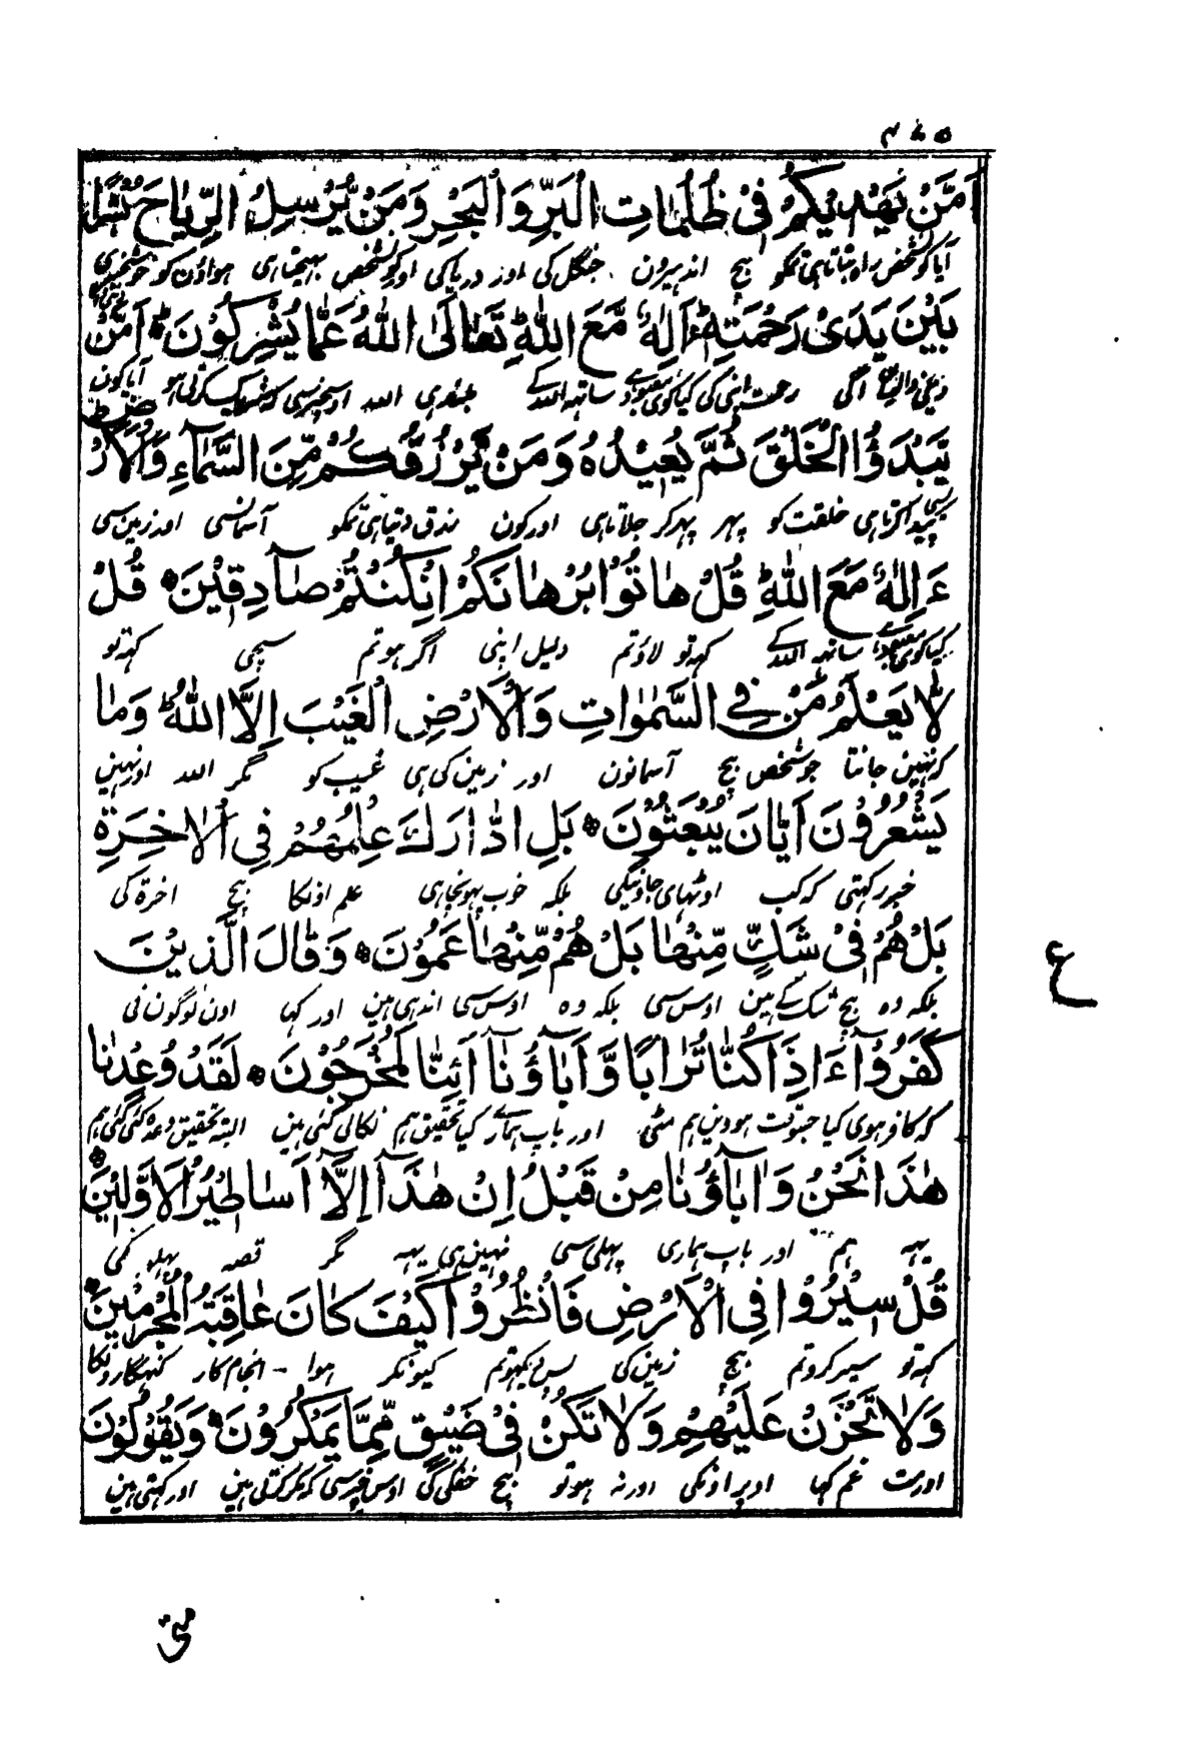 ۴۷۵
اَمَّنْ يَهْدِيْكُمْ فِيْ ظُلُمَاتِ الْبَرِّ وَالْبَحْرِ وَمَنْ يُّرْسِلُ الرِّيَاحَ بُشْرًا
آیا کو شخص راہ بتاتا ہی تمکو بیچ اندہیرون جنگل کی اور دریا کی اور کو شخص بہیجتا ہی ہواؤن کو خوشخبری
بَيْنَ يَدَيْ رَحْمَتِهٖ ءَاِلٰهٌ مَّعَ اللّٰهِ تَعَالَى اللّٰهُ عَمَّا يُشْرِكُوْنَ اَمَّنْ
دینی والیان آگی رحمت اپنی کی کیا کوئی معبود ہے ساتہہ اللہ کے بلند ہی اللہ اوسچیز سی کہ شریک کرتی ہو آیا کون
يَّبْدَؤُا الْخَلْقَ ثُمَّ يُعِيْدُهٗ وَمَنْ يَّرْزُقُكُمْ مِّنَ السَّمَآءِ وَالْاَرْضِ
پیدا کرتا ہی خلقت کو پہر پہر کر جلاتا ہی اور کون رزق دیتا ہی تمکو آسمانسی اور زمین سی
ءَاِلٰهٌ مَّعَ اللّٰهِ قُلْ هَاتُوْا بُرْهَانَكُمْ اِنْ كُنْتُمْ صَادِقِيْنَ قُلْ
کیا کوئی معبود ہے ساتہہ اللہ کے کہہ تو لاؤ تم دلیل اپنی اگر ہو تم سچی کہہ تو
لَّا يَعْلَمُ مَنْ فِي السَّمٰوَاتِ وَالْاَرْضِ الْغَيْبَ اِلَّا اللّٰهُ وَمَا
کہ نہین جانتا جو شخص بیچ آسمانون اور زمین کی ہی غیب کو مگر اللہ اور نہین
يَشْعُرُوْنَ اَيَّانَ يُبْعَثُوْنَ بَلِ ادّٰارَكَ عِلْمُهُمْ فِي الْاٰخِرَةِ
خبر رکہتی کہ کب اوٹہای جاوینگی بلکہ خوب پہونچا ہی علم اونکا بیچ اخرۃ کی
بَلْ هُمْ فِيْ شَكٍّ مِّنْهَا بَلْ هُمْ مِّنْهَا عَمُوْنَ وَقَالَ الَّذِيْنَ
بلکہ وہ بیچ شک کے ہین اوس سی بلکہ وہ اوس سی اندہی ہین اور کہا اون لوگون نی
ع
كَفَرُوْٓا ءَاِذَا كُنَّا تُرَابًا وَّاٰبَآؤُنَآ اَئِنَّا لَمُخْرَجُوْنَ لَقَدْ وُعِدْنَا
کہ کافر ہوی کیا جسوقت ہووین ہم مٹی اور باپ ہمارے کیا تحقیق ہم نکالی گئی ہین البتہ تحقیق وعدہ کئی گئی ہم
هٰذَا نَحْنُ وَاٰبَآؤُنَا مِنْ قَبْلُ اِنْ هٰذَآ اِلَّآ اَسَاطِيْرُ الْاَوَّلِيْنَ
یہہ ہم اور باپ ہماری پہلی سی نہین ہی یہہ مگر قصہ پہلو نکی
قُلْ سِيْرُوْا فِي الْاَرْضِ فَانْظُرُوْا كَيْفَ كَانَ عَاقِبَةُ الْمُجْرِمِيْنَ
کہہ تو سیر کرو تم بیچ زمین کی پس دیکہو تم کیونکر ہوا انجام کار گنہگارونکا
وَلَا تَحْزَنْ عَلَيْهِمْ وَلَا تَكُنْ فِيْ ضَيْقٍ مِّمَّا يَمْكُرُوْنَ وَيَقُوْلُوْنَ
اور مت غم کہا اوپر اونکی اور نہ ہو تو بیچ خفگی کی اوس چیز سی کہ مکر کرتی ہین اور کہتی ہین
متی